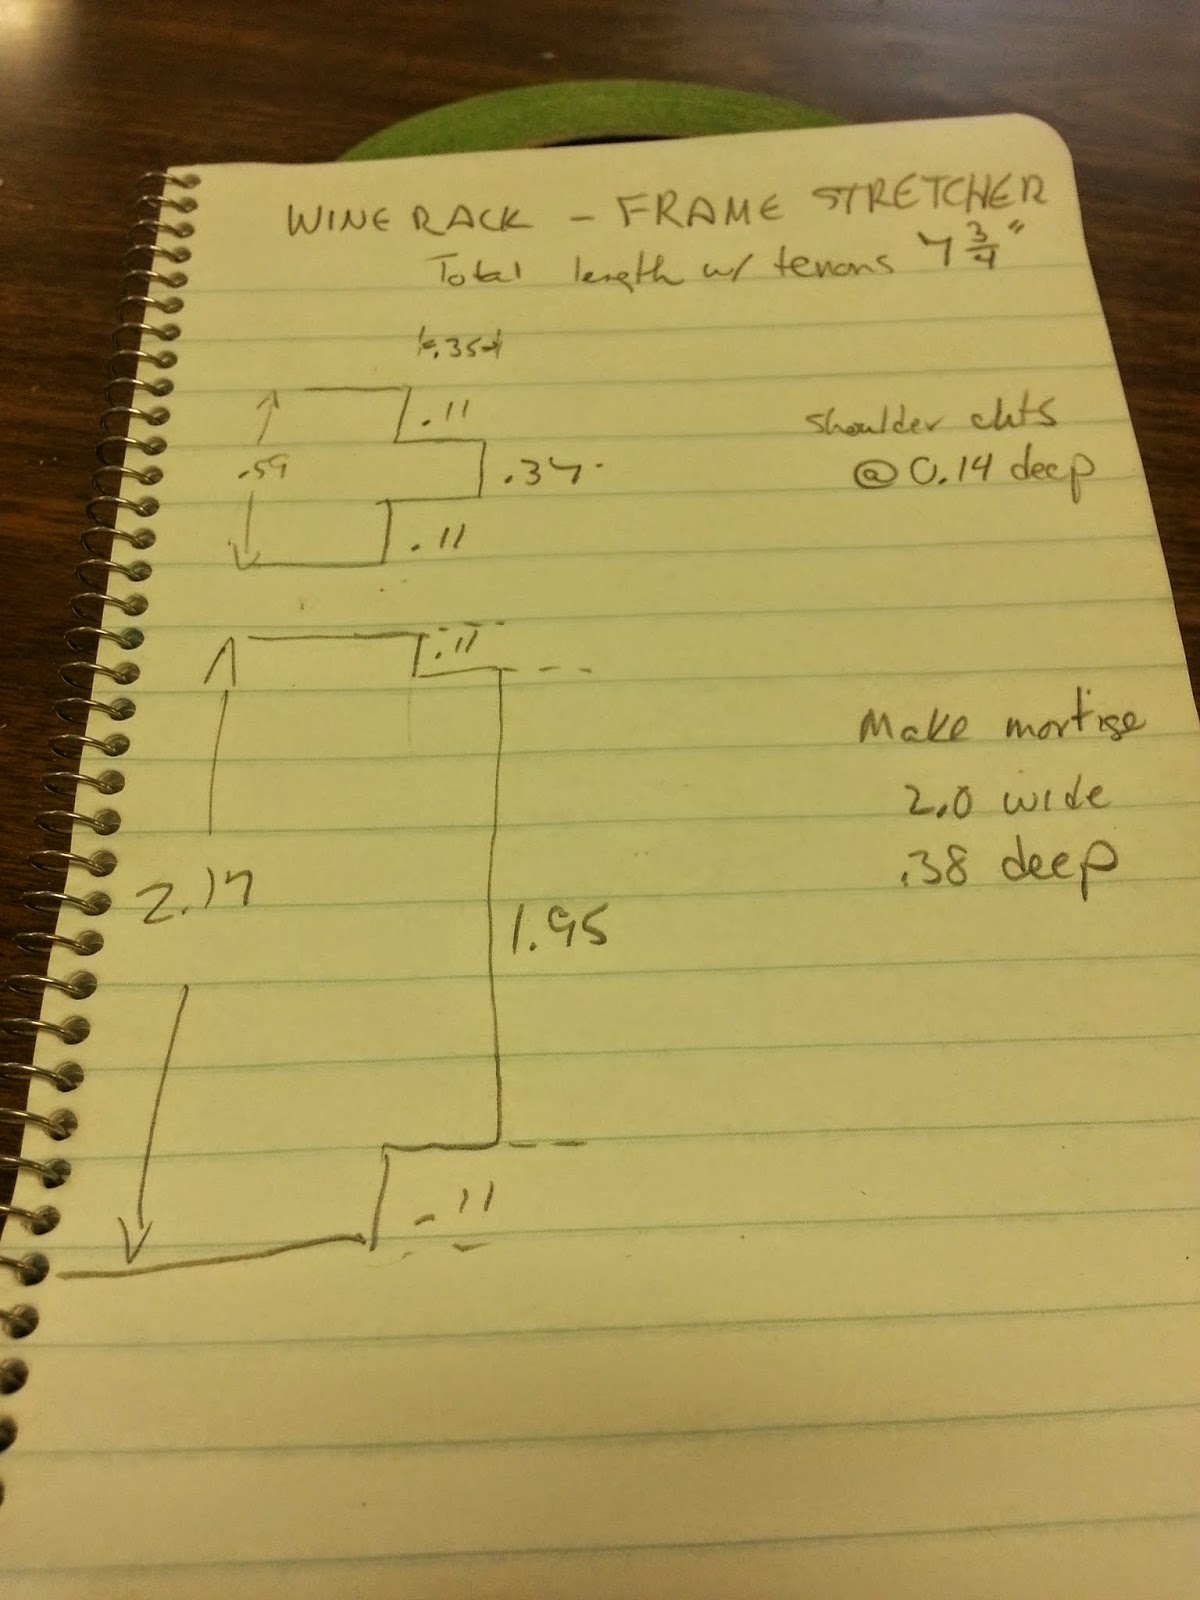 WINE RACK - FRAME STRETCHER
Total length w/ tenons 7 3/4"
.35
.11
.59
.37
.11
shoulder cuts
@ 0.14 deep
.11
2.17
1.95
.11
Make mortise
2.0 wide
.38 deep